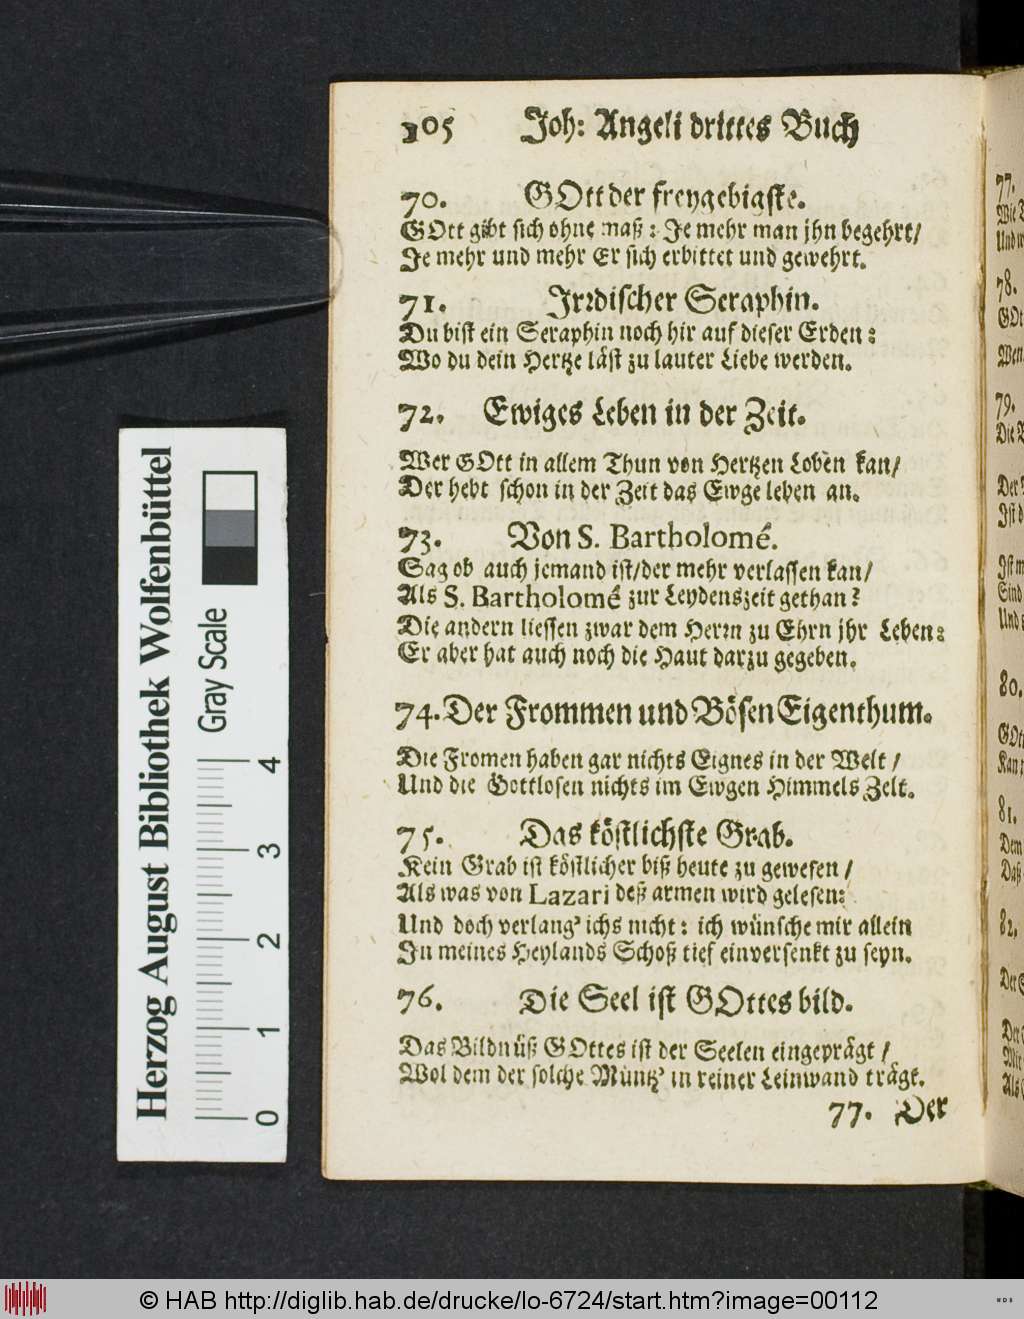 105 Joh: Angeli drittes Buch
70. GOtt der freygebigste.
GOtt gibt sich ohne maß: Je mehr man jhn begehrt/
Je mehr und mehr Er sich erbittet und gewehrt.
71. Jrrdischer Seraphin.
Du bist ein Seraphin noch hir auf dieser Erden:
Wo du dein Hertze läst zu lauter Liebe werden.
72. Ewiges Leben in der Zeit.
Wer GOtt in allem Thun von Hertzen Loben kan/
Der hebt schon in der Zeit das Ewge leben an.
73. Von S. Bartholomé.
Sag ob auch jemand ist/der mehr verlassen kan/
Als S. Bartholomé zur Leydenszeit gethan?
Die andern liessen zwar dem Herrn zu Ehrn jhr Leben:
Er aber hat auch noch die Haut darzu gegeben.
74. Der Frommen und Bösen Eigenthum.
Die Fromen haben gar nichts Eignes in der Welt/
Und die Gottlosen nichts im Ewgen Himmels Zelt.
75. Das köstlichste Grab.
Kein Grab ist köstlicher biß heute zu gewesen/
Als was von Lazari deß armen wird gelesen:
Und doch verlang' ichs nicht: ich wünsche mir allein
In meines Heylands Schoß tief einversenkt zu seyn.
76. Die Seel ist GOttes bild.
Das Bildnüß GOttes ist der Seelen eingeprägt/
Wol dem der solche Müntz' in reiner Leinwand trägt.
77. Der
77.
78.
79.
80.
81.
82.
Herzog August Bibliothek Wolfenbüttel
Gray Scale
0 1 2 3 4
© HAB http://diglib.hab.de/drucke/lo-6724/start.htm?image=00112